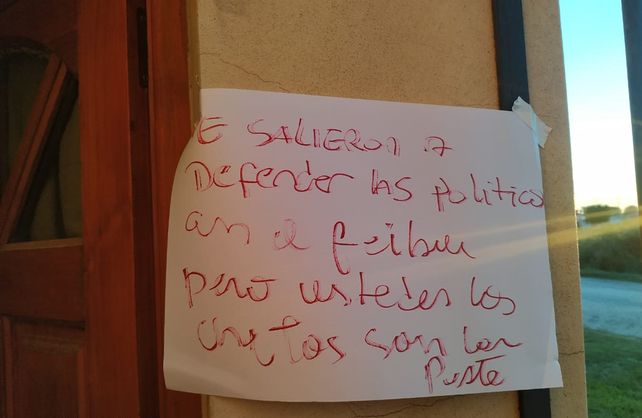 E SALIERON A
Defender las politico
an el feibu
pero ustedes los
chetos son la
peste